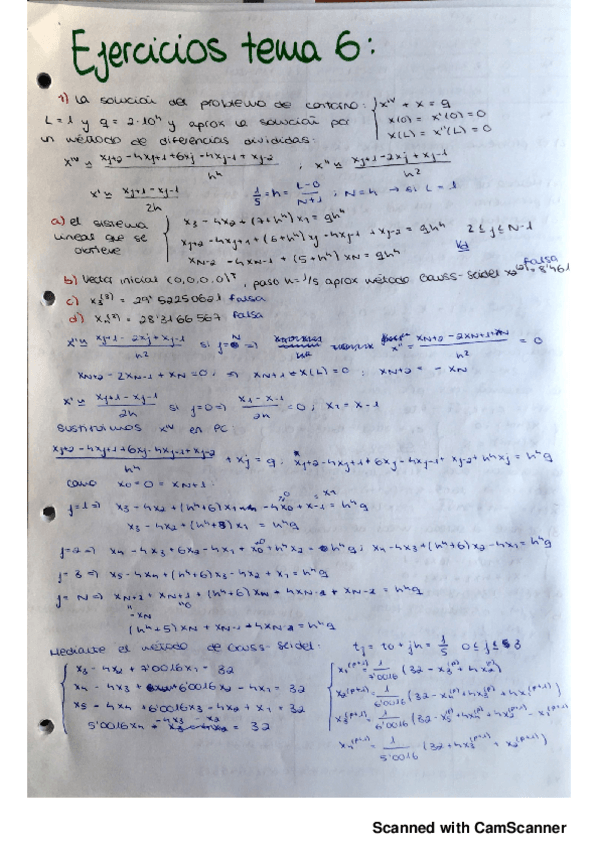 Ejercicios tema 6:
1) La solución del problema de contorno: { x^IV + x = g
L = 1 y g = 2·10^4 y aprox la solución por x(0) = x'(0) = 0
un método de diferencias divididas: x(L) = x''(L) = 0
x^IV ≃ (xj+2 - 4xj+1 + 6xj - 4xj-1 + xj-2)/h^4 , x'' ≃ (xj+1 - 2xj + xj-1)/h^2
x' ≃ (xj+1 - xj-1)/2h 1/5 = h = (L-0)/(N+1) ; N = 4 → si L = 1
a) el sistema { x3 - 4x2 + (7+h^4) x1 = gh^4
lineal que se xj+2 - 4xj+1 + (6+h^4) xj - 4xj-1 + xj-2 = gh^4 2 ≤ j ≤ N-1
obtiene xN-2 - 4xN-1 + (5+h^4) xN = gh^4
b) Vector inicial (0,0,0,0)^T, paso h = 1/5 aprox método Gauss-Seidel falsa
c) x3^(3) = 29'52250621 falsa
d) = 28'3166567 falsa
x'' ≃ (xj+1 - 2xj + xj-1)/h^2 si j = N ⇒ = 0
⇒ xN+1 = x(L) = 0 ; xN+2 = - xN
x' ≃ (xj+1 - xj-1)/2h si j=0 ⇒ (x1 - x-1)/2h = 0 ; x1 = x-1
Sustituimos x^IV en PC:
(xj+2 - 4xj+1 + 6xj - 4xj-1 + xj-2)/h^4 + xj = g ; xj+2 - 4xj+1 + 6xj - 4xj-1 + xj-2 + h^4xj = h^4g
como x0 = 0 = xN+1:
j=1 ⇒ x3 - 4x2 + (h^4+6)x1 - 4x0 + x-1 = h^4g
x3 - 4x2 + (h^4+ ) x1 = h^4g
j=2 ⇒ x4 - 4x3 + 6x2 - 4x1 + x0 + h^4x2 = h^4g ; x4 - 4x3 + (h^4+6)x2 - 4x1 = h^4g
j=3 ⇒ x5 - 4x4 + (h^4+6)x3 - 4x2 + x1 = h^4g
j=N ⇒ xN+2 + xN+1 + (h^4+6)xN + 4xN-1 + xN-2 = h^4g
(h^4+5)xN + xN-2 + 4xN-1 = h^4g
Mediante el método de Gauss-Seidel: tj = t0 + jh = 1/5 0 ≤ j ≤
{ x3 - 4x2 + 7'0016x1 = 32
x4 - 4x3 + 6'0016x2 - 4x1 = 32
x5 - 4x4 + 6'0016x3 - 4x2 + x1 = 32
5'0016x4 = 32
{ x1^(p+1) = 1/7'0016 (32 - x3^(p) + 4x2^(p))
x2^(p+1) = 1/6'0016
x3^(p+1) = 1/6'0016
x4^(p+1) = 1/5'0016
Scanned with CamScanner